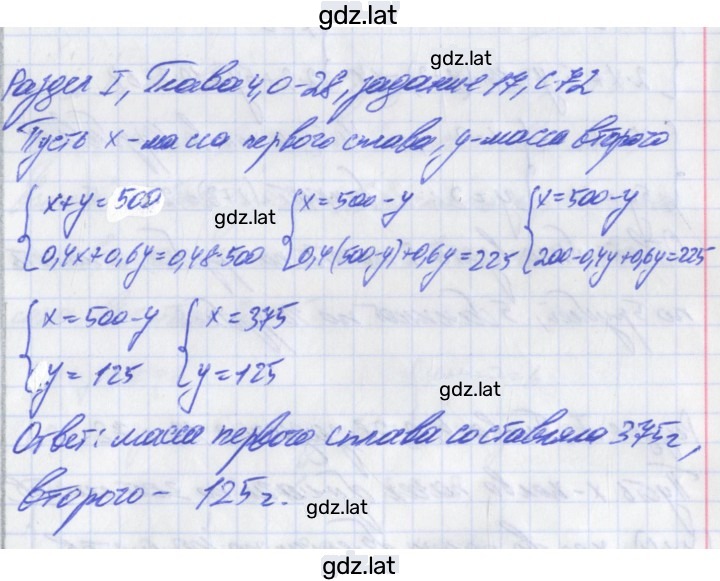 gdz.lat
gdz.lat
Раздел I, Глава 4, О-28, задание 17, с. 72
Пусть x-масса первого сплава, y-масса второго
x+y=500 gdz.lat x=500-y x=500-y
0,4x+0,6y=0,48·500 0,4(500-y)+0,6y=225 200-0,4y+0,6y=225
x=500-y x=375
y=125 y=125
gdz.lat
Ответ: масса первого сплава составляла 375г,
второго - 125г.
gdz.lat
gdz.lat